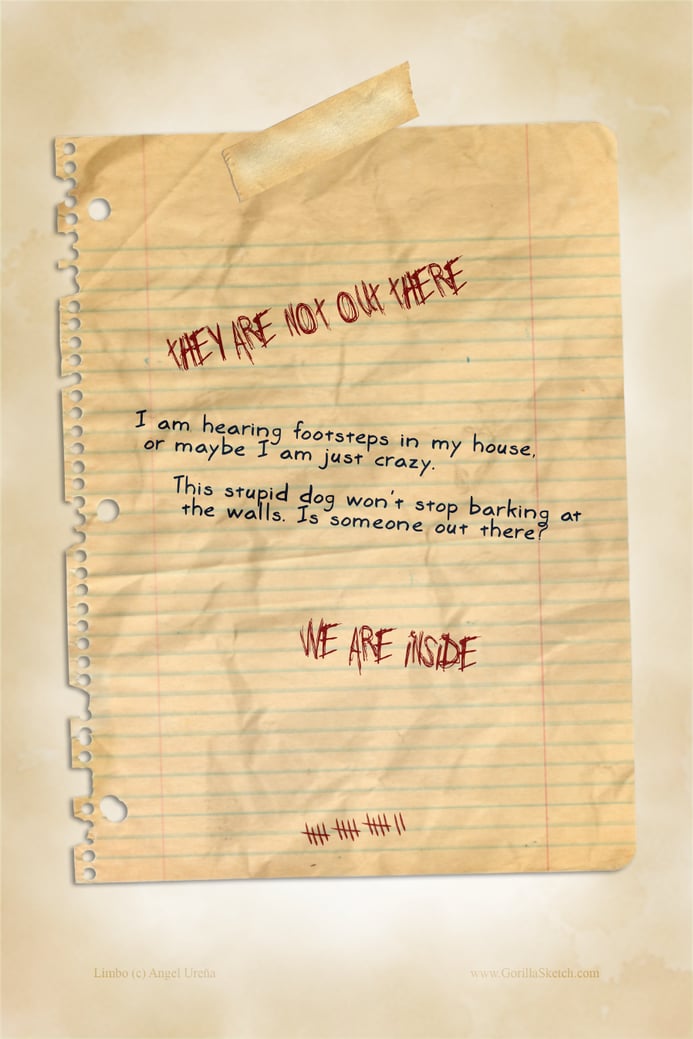 tHEY ARE NOt OUt tHERE
I am hearing footsteps in my house,
or maybe I am just crazy.
This stupid dog won't stop barking at
the walls. Is someone out there?
WE ARE iNSiDE
Limbo (c) Angel Ureña
www.GorillaSketch.com